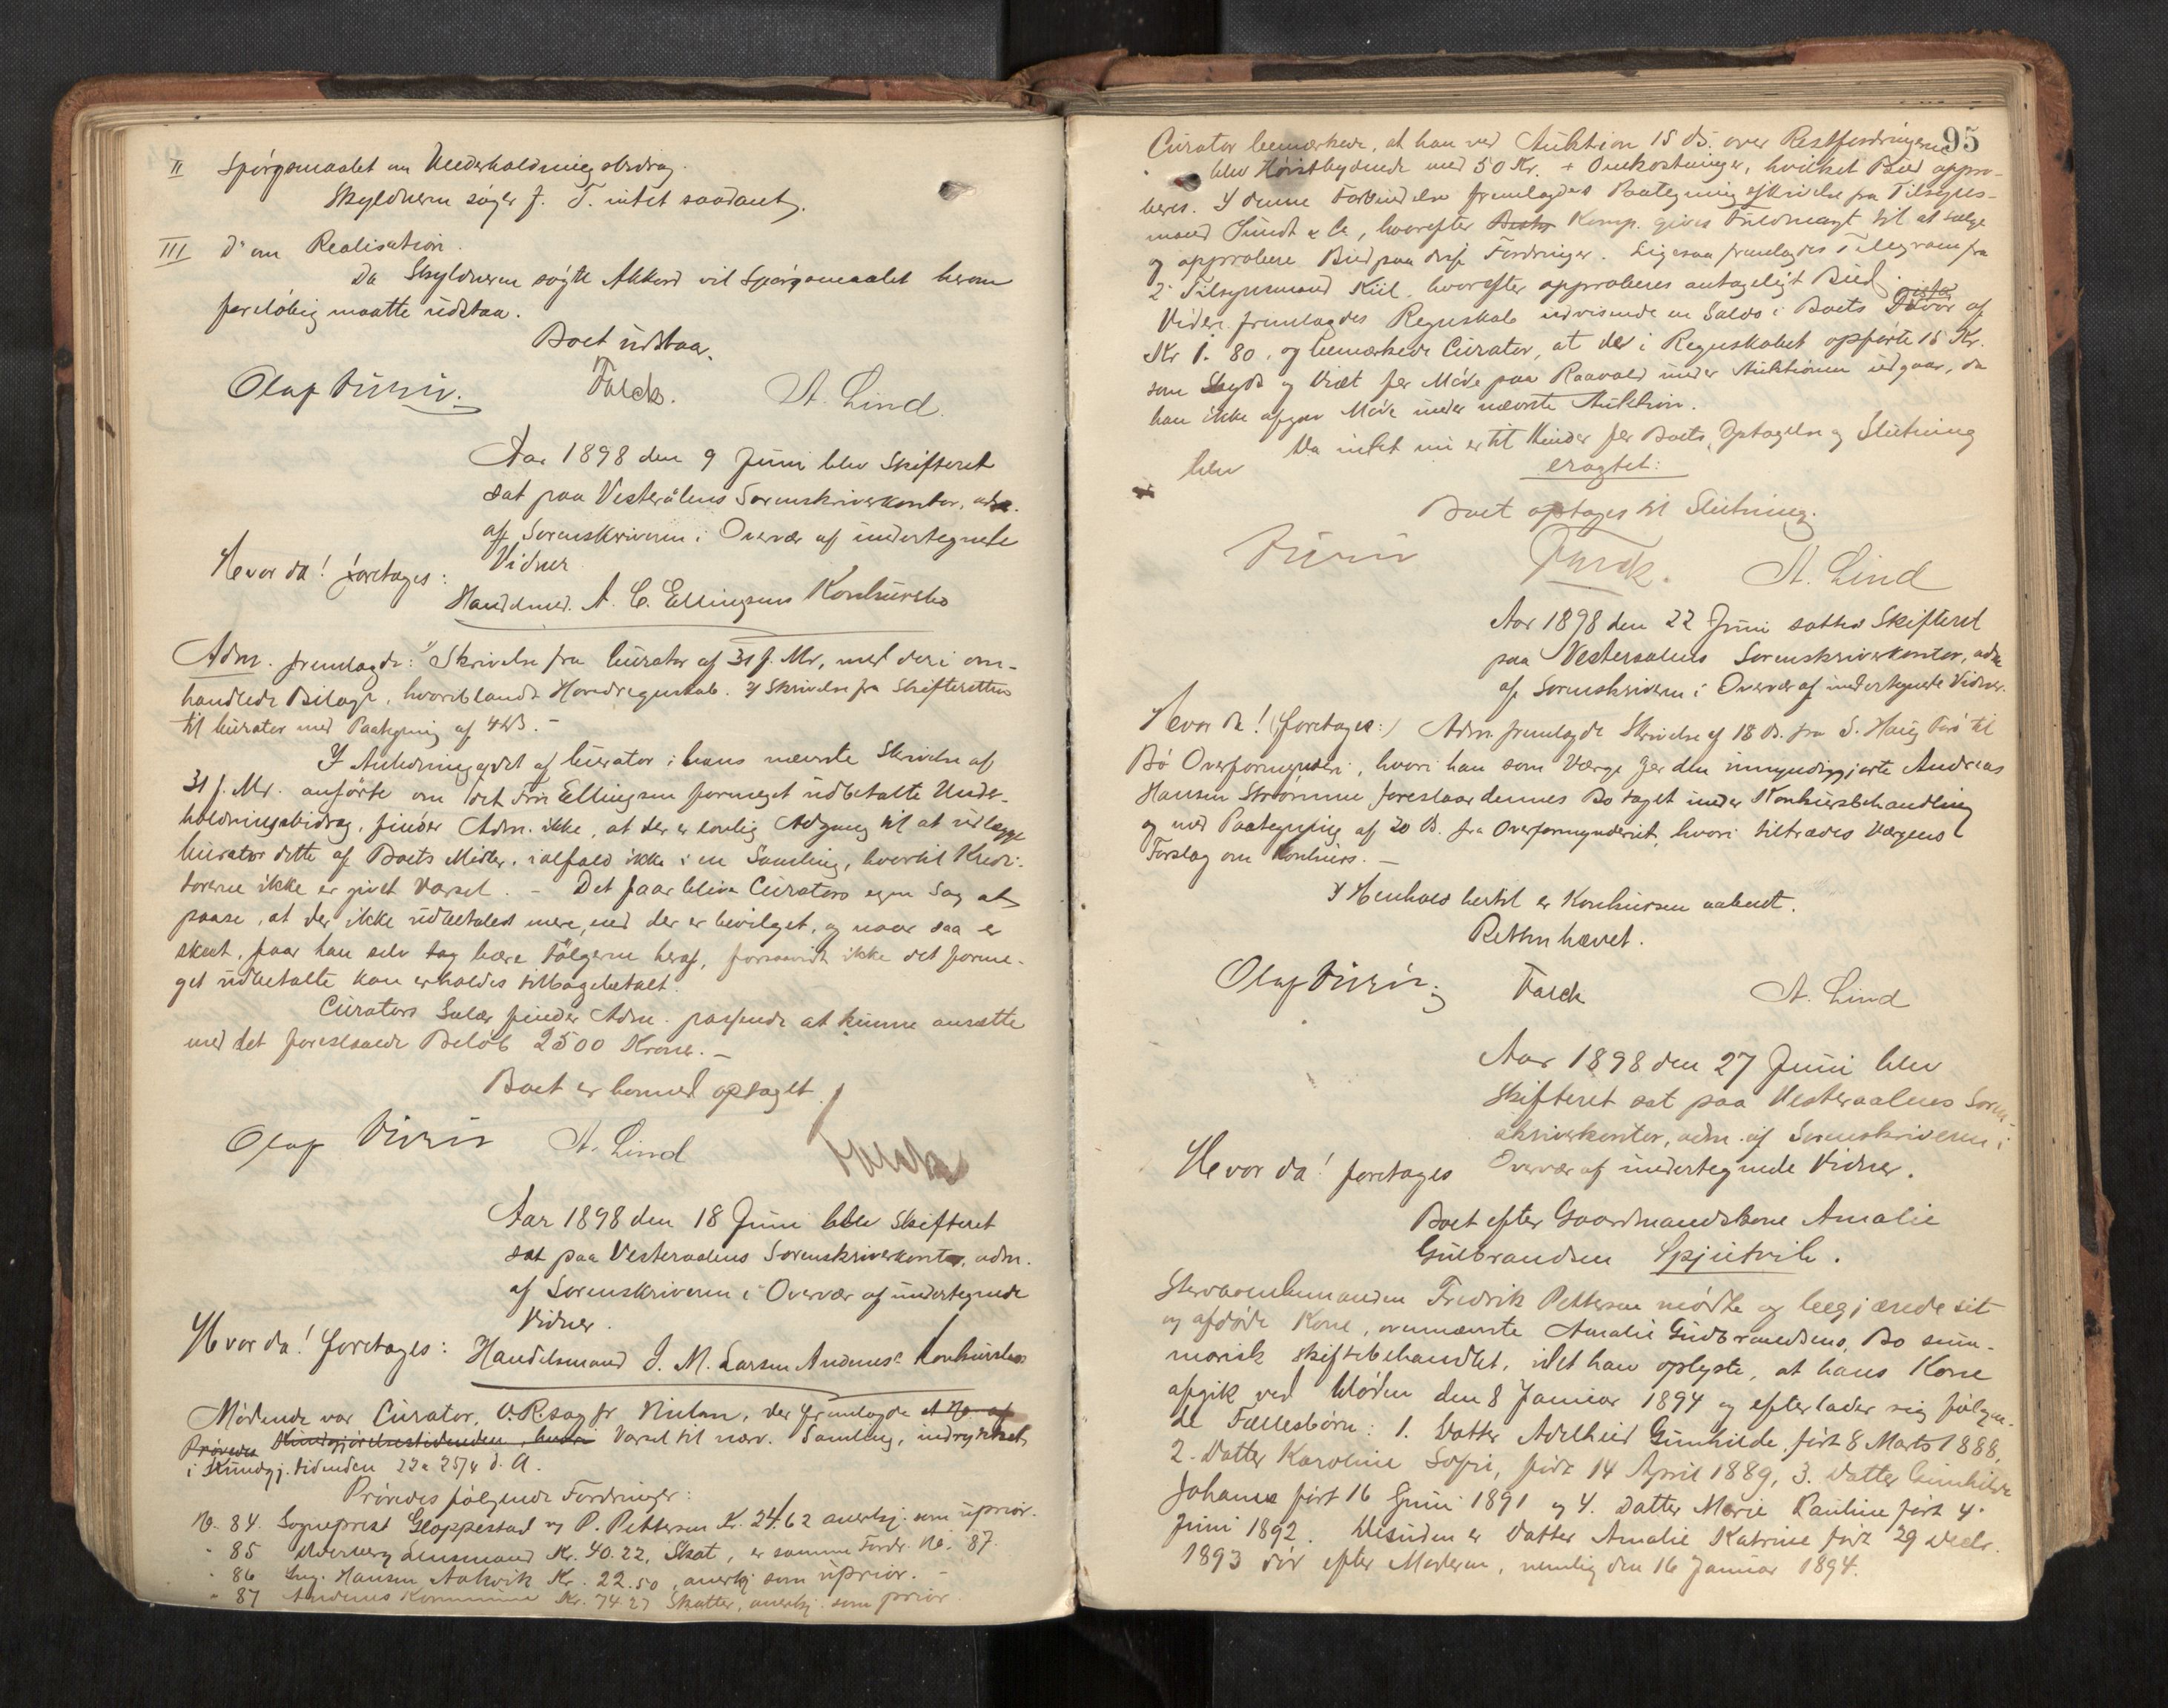 II Spørgsmaalet om Underholdningsbidrag.
Skyldneren søger f. T. intet saadant.
III Do om Realisation.
Da Skyldneren søgte Akkord vil Spørgsmaalet herom
foreløbig maatte udstaa.
Boet udstaar.
Olaf Falck. A. Lind.
Aar 1898 den 9 Juni blev Skifteret
sat paa Vesterålens Sorenskriverkontor, adm.
af Sorenskriveren i Overvær af undertegnede
Vidner
Hvor da! foretages:
Handelsmd. A. C. Ellingsens Konkursbo
Adm. fremlagde: 1) Skrivelse fra Curator af 31 f. Md, med deri om-
handlede Bilage, hvoriblandt Hovedregnskab. 2) Skrivelse fra Skifteretten
til Curator med Paategning af 4 ds. -
I Anledning af det af Curator i hans nævnte Skrivelse af
31 f. Md. anførte om det Fru Ellingsen formeget udbetalte Under-
holdningsbidrag, finder Adm. ikke, at der er lovlig Adgang til at udlægge
Curator dette af Boets Midler, ialfald ikke i en Samling, hvortil Kredi-
torerne ikke er givet Varsel. - Det faar blive Curators egen Sag at
paase, at der ikke udbetales mere, end der er bevilget, og naar saa er
skeet, faar han selv tag bære Følgerne heraf, forsaavidt ikke det forme-
get udbetalte kan erholdes tilbagebetalt.
Curators Salær finder Adm. passende at kunne ansætte
med det foreslaaede Beløb 2500 Kroner. -
Boet er hermed optaget.
Olaf A. Lind Falck
Aar 1898 den 18 Juni blev Skifteret
sat paa Vesteraalens Sorenskriverkontor, adm.
af Sorenskriveren i Overvær af undertegnede
Vidner.
Hvor da! foretages: Handelsmand J. M. Larsen Andenes' Konkursbo
Mødende var Curator, O.R.sagfr Nilsen, der fremlagde
Kundgjørelsestidenden, hvori Varsel til nærv. Samling, indrykket
i Kundgj. tidenden 22 & 25/4 d. A.
Prøvedes følgende Fordringer:
No. 84. Sogneprest Gloppestad v/ P. Pettersen Kr. 24.62 anerkj. som uprior.
" 85 Lensmand Kr. 40.22, Skat, er samme Fordr. No. 87.
" 86 Hansen Aakvik Kr. 22.50, anerkj som uprior. -
" 87 Andenes Kommune Kr. 74 27 Skatter, anerkj. som prior
95
Curator bemærkede, at han ved Auktion 15 ds. over Restfordringerne
blev Høistbydende med 50 Kr. + Omkostninger, hvilket Bud appro-
beres. I denne Forbindelse fremlagdes Paategningsskrivelse fra Tilsyns-
mand Sundt & Co, hvorefter Komp. gives Fuldmagt til at sælge
og approbere Bud paa disse Fordringer. Ligesaa fremlagdes Telegram fra
2. Tilsynsmand Kiil, hvorefter approberes antageligt Bud.
Videre fremlagdes Regnskab udvisende en Saldo i Boets Favør af
Kr 1. 80, og bemærkede Curator, at de i Regnskabet opførte 15 Kr.
som Skyds og Diæt for Møde paa Raavold under Auktionen udgaar, da
han ikke afgav Møde under nævnte Auktion.
Da intet nu er til Hinder for Boets Optagelse og Slutning
blev eragtet:
Boet optages til Slutning.
Falck. A. Lind
Aar 1898 den 22 Juni sattes Skifteret
paa Vesteraalens Sorenskriverkontor, adm
af Sorenskriveren i Overvær af undertegnede Vidner.
Hvor da! (foretages:) Adm. fremlagde Skrivelse af 18 ds. fra S. Haug til
Bø Overformynderi, hvori han som Værge for den umyndiggjorte Andreas
Hansen Strømme foreslaar dennes Bo taget under Konkursbehandling
og med Paategning af 20 ds. fra Overformynderiet, hvori tiltrædes Værgens
Forslag om Konkurs. -
I Henhold hertil er Konkursen aabent.
Retten hævet.
Olaf Falck A. Lind
Aar 1898 den 27 Juni blev
Skifteret sat paa Vesteraalens Soren-
skriverkontor, adm. af Sorenskriveren i
Hvor da! foretages Overvær af undertegnede Vidner.
Boet efter Gaardmandskone Amalie
Gulbrandsen Spjutvik.
Fredrik Pettersen mødte og begjærede sit
og afdøde Kone, ovennævnte Amalie Gudbrandsens, Bo sum-
marisk skiftebehandlet, idet han oplyste, at hans Kone
afgik ved Døden den 8 Januar 1894 og efterlader sig følgen-
de Fællesbørn: 1. Datter Adelheid Gunhilde, født 8 Marts 1888,
2. Datter Karoline Sofie, født 14 April 1889, 3. Datter Gunhilde
Johanna født 16 Juni 1891 og 4. Datter Marie Pauline født 4.
Juni 1892. Desuden er Datter Amalie Katrine født 29 Decbr.
1893 død efter Moderen, nemlig den 16 Januar 1894.